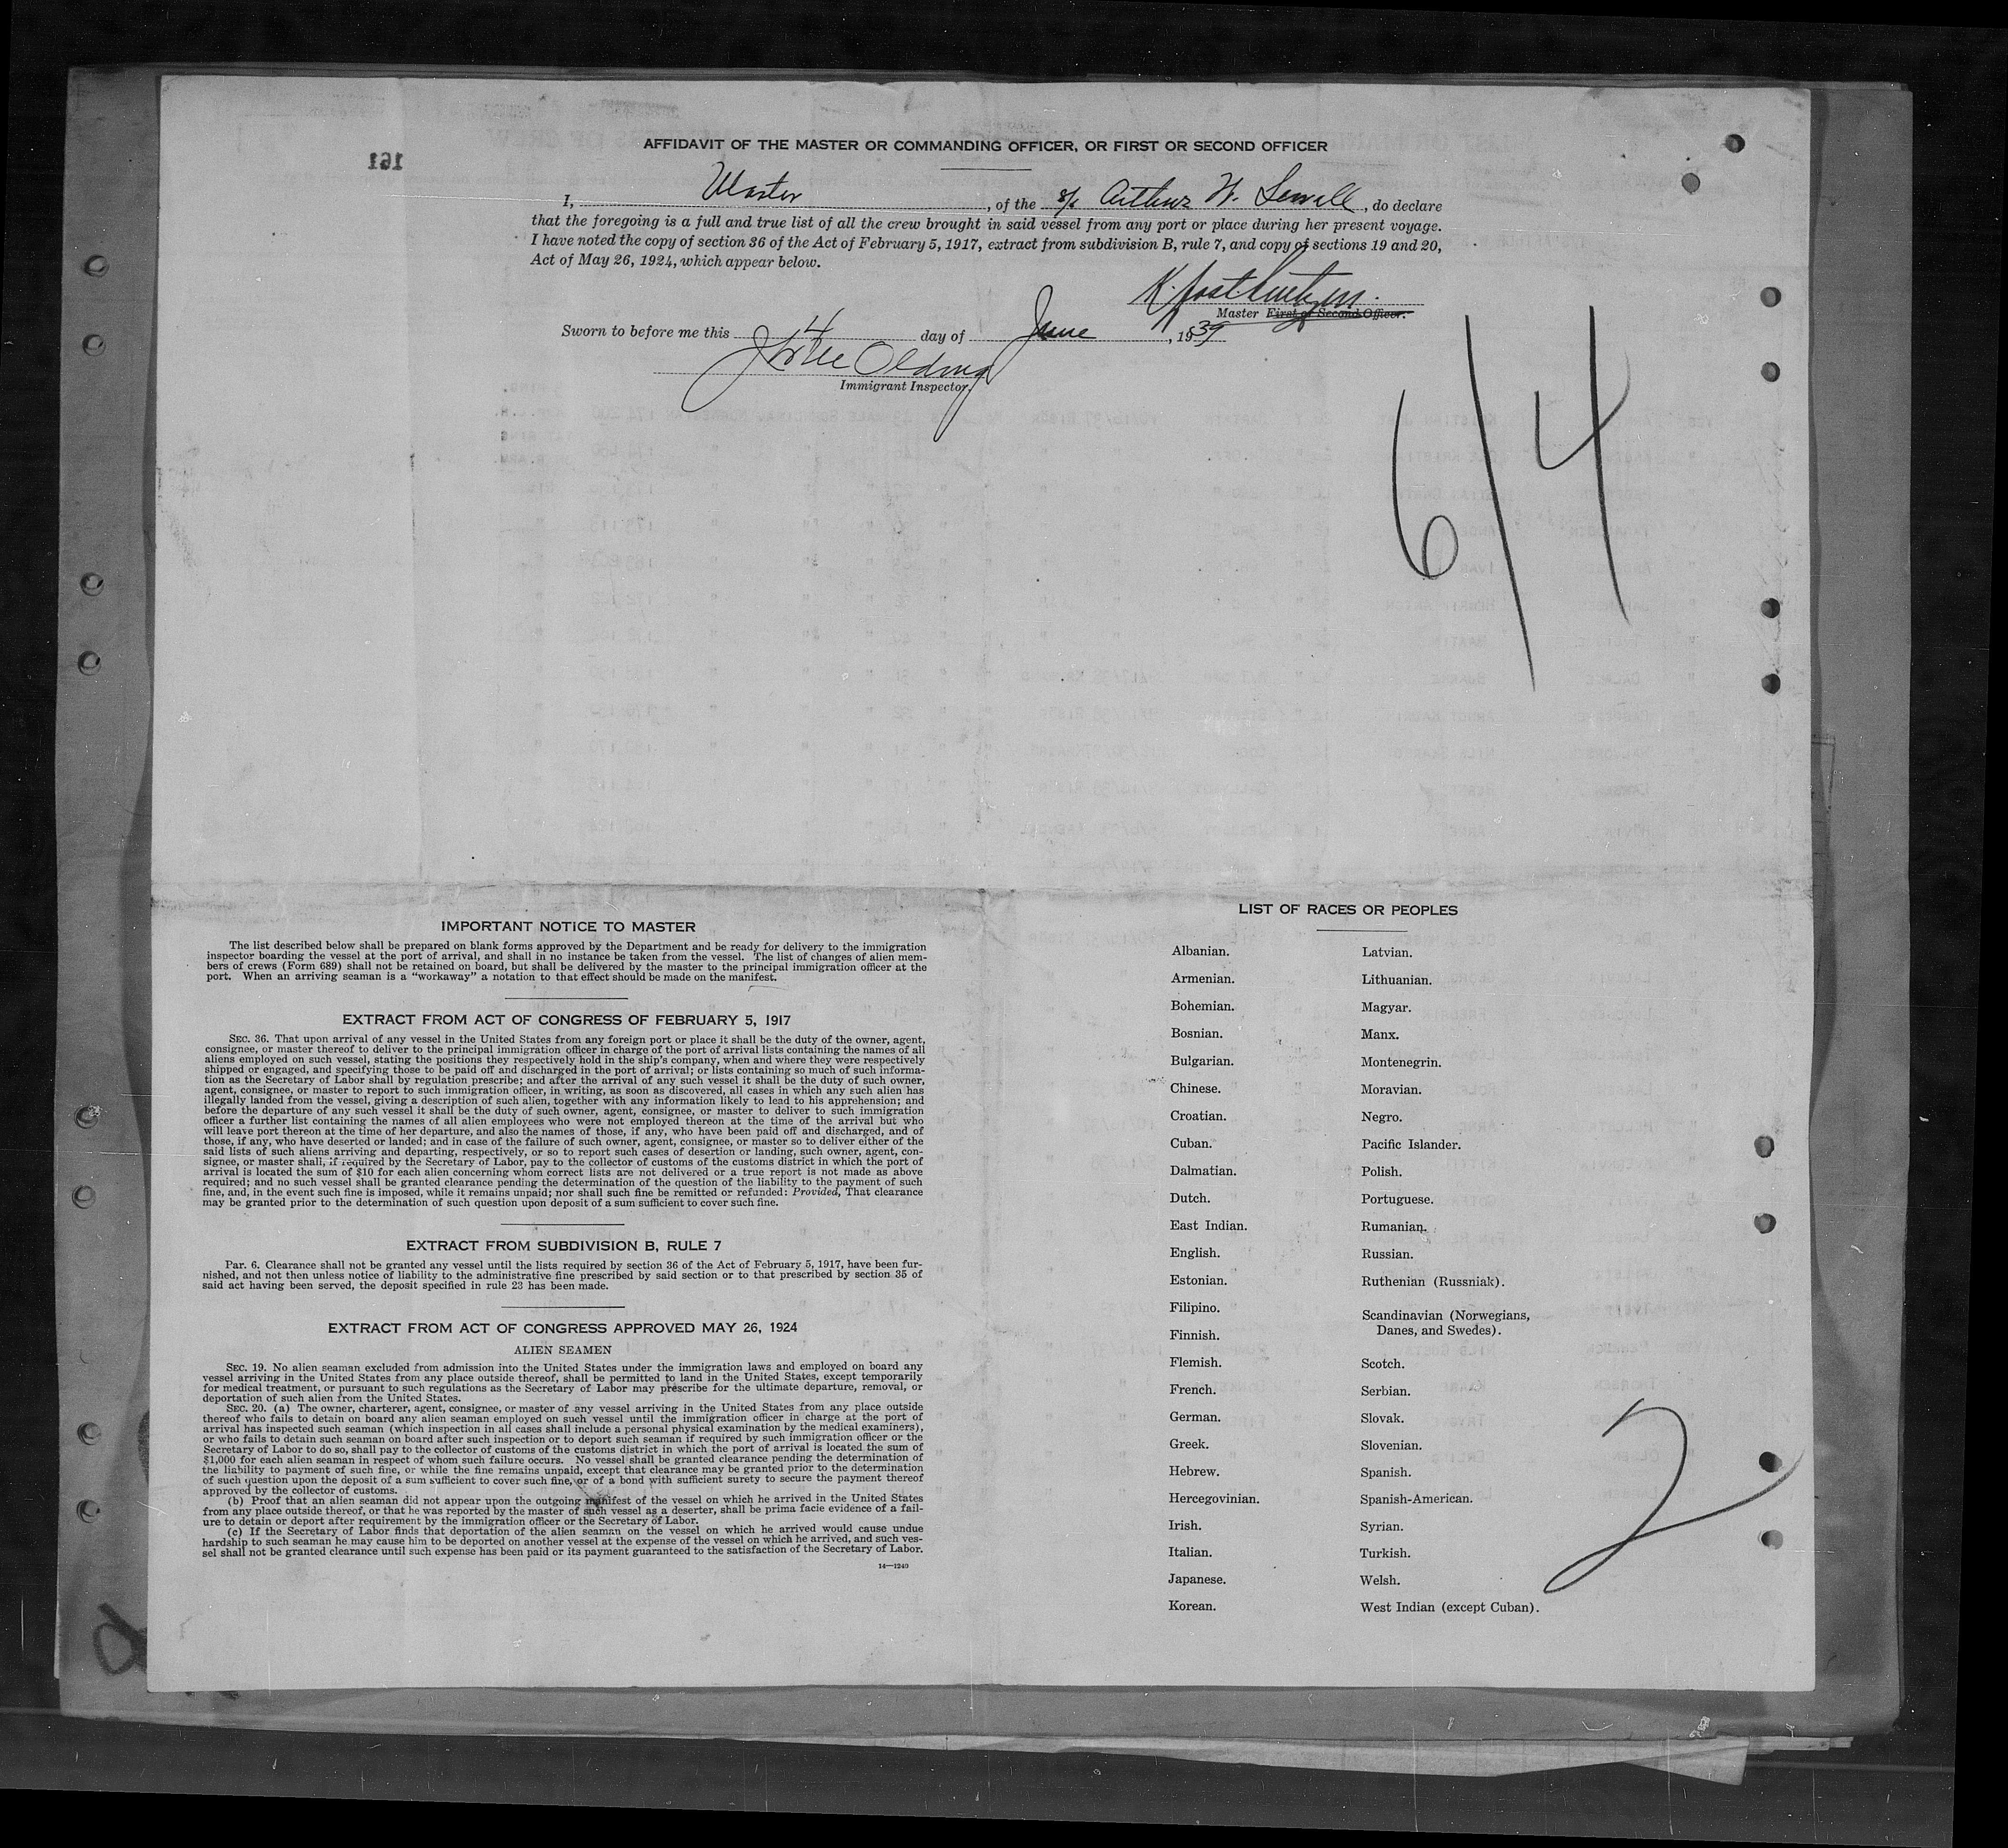 AFFIDAVIT OF THE MASTER OR COMMANDING OFFICER, OR FIRST OR SECOND OFFICER
161
I, Master, of the s/s Arthur W. Sewall, do declare
that the foregoing is a full and true list of all the crew brought in said vessel from any port or place during her present voyage.
I have noted the copy of section 36 of the Act of February 5, 1917, extract from subdivision B, rule 7, and copy of sections 19 and 20,
Act of May 26, 1924, which appear below.
K.
Master First or Second Officer.
Sworn to before me this 4 day of June, 1939
Olding
Immigrant Inspector.
6/4
IMPORTANT NOTICE TO MASTER
The list described below shall be prepared on blank forms approved by the Department and be ready for delivery to the immigration
inspector boarding the vessel at the port of arrival, and shall in no instance be taken from the vessel. The list of changes of alien mem-
bers of crews (Form 689) shall not be retained on board, but shall be delivered by the master to the principal immigration officer at the
port. When an arriving seaman is a "workaway" a notation to that effect should be made on the manifest.
EXTRACT FROM ACT OF CONGRESS OF FEBRUARY 5, 1917
SEC. 36. That upon arrival of any vessel in the United States from any foreign port or place it shall be the duty of the owner, agent,
consignee, or master thereof to deliver to the principal immigration officer in charge of the port of arrival lists containing the names of all
aliens employed on such vessel, stating the positions they respectively hold in the ship's company, when and where they were respectively
shipped or engaged, and specifying those to be paid off and discharged in the port of arrival; or lists containing so much of such informa-
tion as the Secretary of Labor shall by regulation prescribe; and after the arrival of any such vessel it shall be the duty of such owner,
agent, consignee, or master to report to such immigration officer, in writing, as soon as discovered, all cases in which any such alien has
illegally landed from the vessel, giving a description of such alien, together with any information likely to lead to his apprehension; and
before the departure of any such vessel it shall be the duty of such owner, agent, consignee, or master to deliver to such immigration
officer a further list containing the names of all alien employees who were not employed thereon at the time of the arrival but who
will leave port thereon at the time of her departure, and also the names of those, if any, who have been paid off and discharged, and of
those, if any, who have deserted or landed; and in case of the failure of such owner, agent, consignee, or master so to deliver either of the
said lists of such aliens arriving and departing, respectively, or so to report such cases of desertion or landing, such owner, agent, con-
signee, or master shall, if required by the Secretary of Labor, pay to the collector of customs of the customs district in which the port of
arrival is located the sum of $10 for each alien concerning whom correct lists are not delivered or a true report is not made as above
required; and no such vessel shall be granted clearance pending the determination of the question of the liability to the payment of such
fine, and, in the event such fine is imposed, while it remains unpaid; nor shall such fine be remitted or refunded: Provided, That clearance
may be granted prior to the determination of such question upon deposit of a sum sufficient to cover such fine.
EXTRACT FROM SUBDIVISION B, RULE 7
Par. 6. Clearance shall not be granted any vessel until the lists required by section 36 of the Act of February 5, 1917, have been fur-
nished, and not then unless notice of liability to the administrative fine prescribed by said section or to that prescribed by section 35 of
said act having been served, the deposit specified in rule 23 has been made.
EXTRACT FROM ACT OF CONGRESS APPROVED MAY 26, 1924
ALIEN SEAMEN
SEC. 19. No alien seaman excluded from admission into the United States under the immigration laws and employed on board any
vessel arriving in the United States from any place outside thereof, shall be permitted to land in the United States, except temporarily
for medical treatment, or pursuant to such regulations as the Secretary of Labor may prescribe for the ultimate departure, removal, or
deportation of such alien from the United States.
SEC. 20. (a) The owner, charterer, agent, consignee, or master of any vessel arriving in the United States from any place outside
thereof who fails to detain on board any alien seaman employed on such vessel until the immigration officer in charge at the port of
arrival has inspected such seaman (which inspection in all cases shall include a personal physical examination by the medical examiners),
or who fails to detain such seaman on board after such inspection or to deport such seaman if required by such immigration officer or the
Secretary of Labor to do so, shall pay to the collector of customs of the customs district in which the port of arrival is located the sum of
$1,000 for each alien seaman in respect of whom such failure occurs. No vessel shall be granted clearance pending the determination of
the liability to payment of such fine, or while the fine remains unpaid, except that clearance may be granted prior to the determination
of such question upon the deposit of a sum sufficient to cover such fine, or of a bond with sufficient surety to secure the payment thereof
approved by the collector of customs.
(b) Proof that an alien seaman did not appear upon the outgoing manifest of the vessel on which he arrived in the United States
from any place outside thereof, or that he was reported by the master of such vessel as a deserter, shall be prima facie evidence of a fail-
ure to detain or deport after requirement by the immigration officer or the Secretary of Labor.
(c) If the Secretary of Labor finds that deportation of the alien seaman on the vessel on which he arrived would cause undue
hardship to such seaman he may cause him to be deported on another vessel at the expense of the vessel on which he arrived, and such ves-
sel shall not be granted clearance until such expense has been paid or its payment guaranteed to the satisfaction of the Secretary of Labor.
14—1240
LIST OF RACES OR PEOPLES
Albanian.
Armenian.
Bohemian.
Bosnian.
Bulgarian.
Chinese.
Croatian.
Cuban.
Dalmatian.
Dutch.
East Indian.
English.
Estonian.
Filipino.
Finnish.
Flemish.
French.
German.
Greek.
Hebrew.
Hercegovinian.
Irish.
Italian.
Japanese.
Korean.
Latvian.
Lithuanian.
Magyar.
Manx.
Montenegrin.
Moravian.
Negro.
Pacific Islander.
Polish.
Portuguese.
Rumanian.
Russian.
Ruthenian (Russniak).
Scandinavian (Norwegians,
Danes, and Swedes).
Scotch.
Serbian.
Slovak.
Slovenian.
Spanish.
Spanish-American.
Syrian.
Turkish.
Welsh.
West Indian (except Cuban).
2